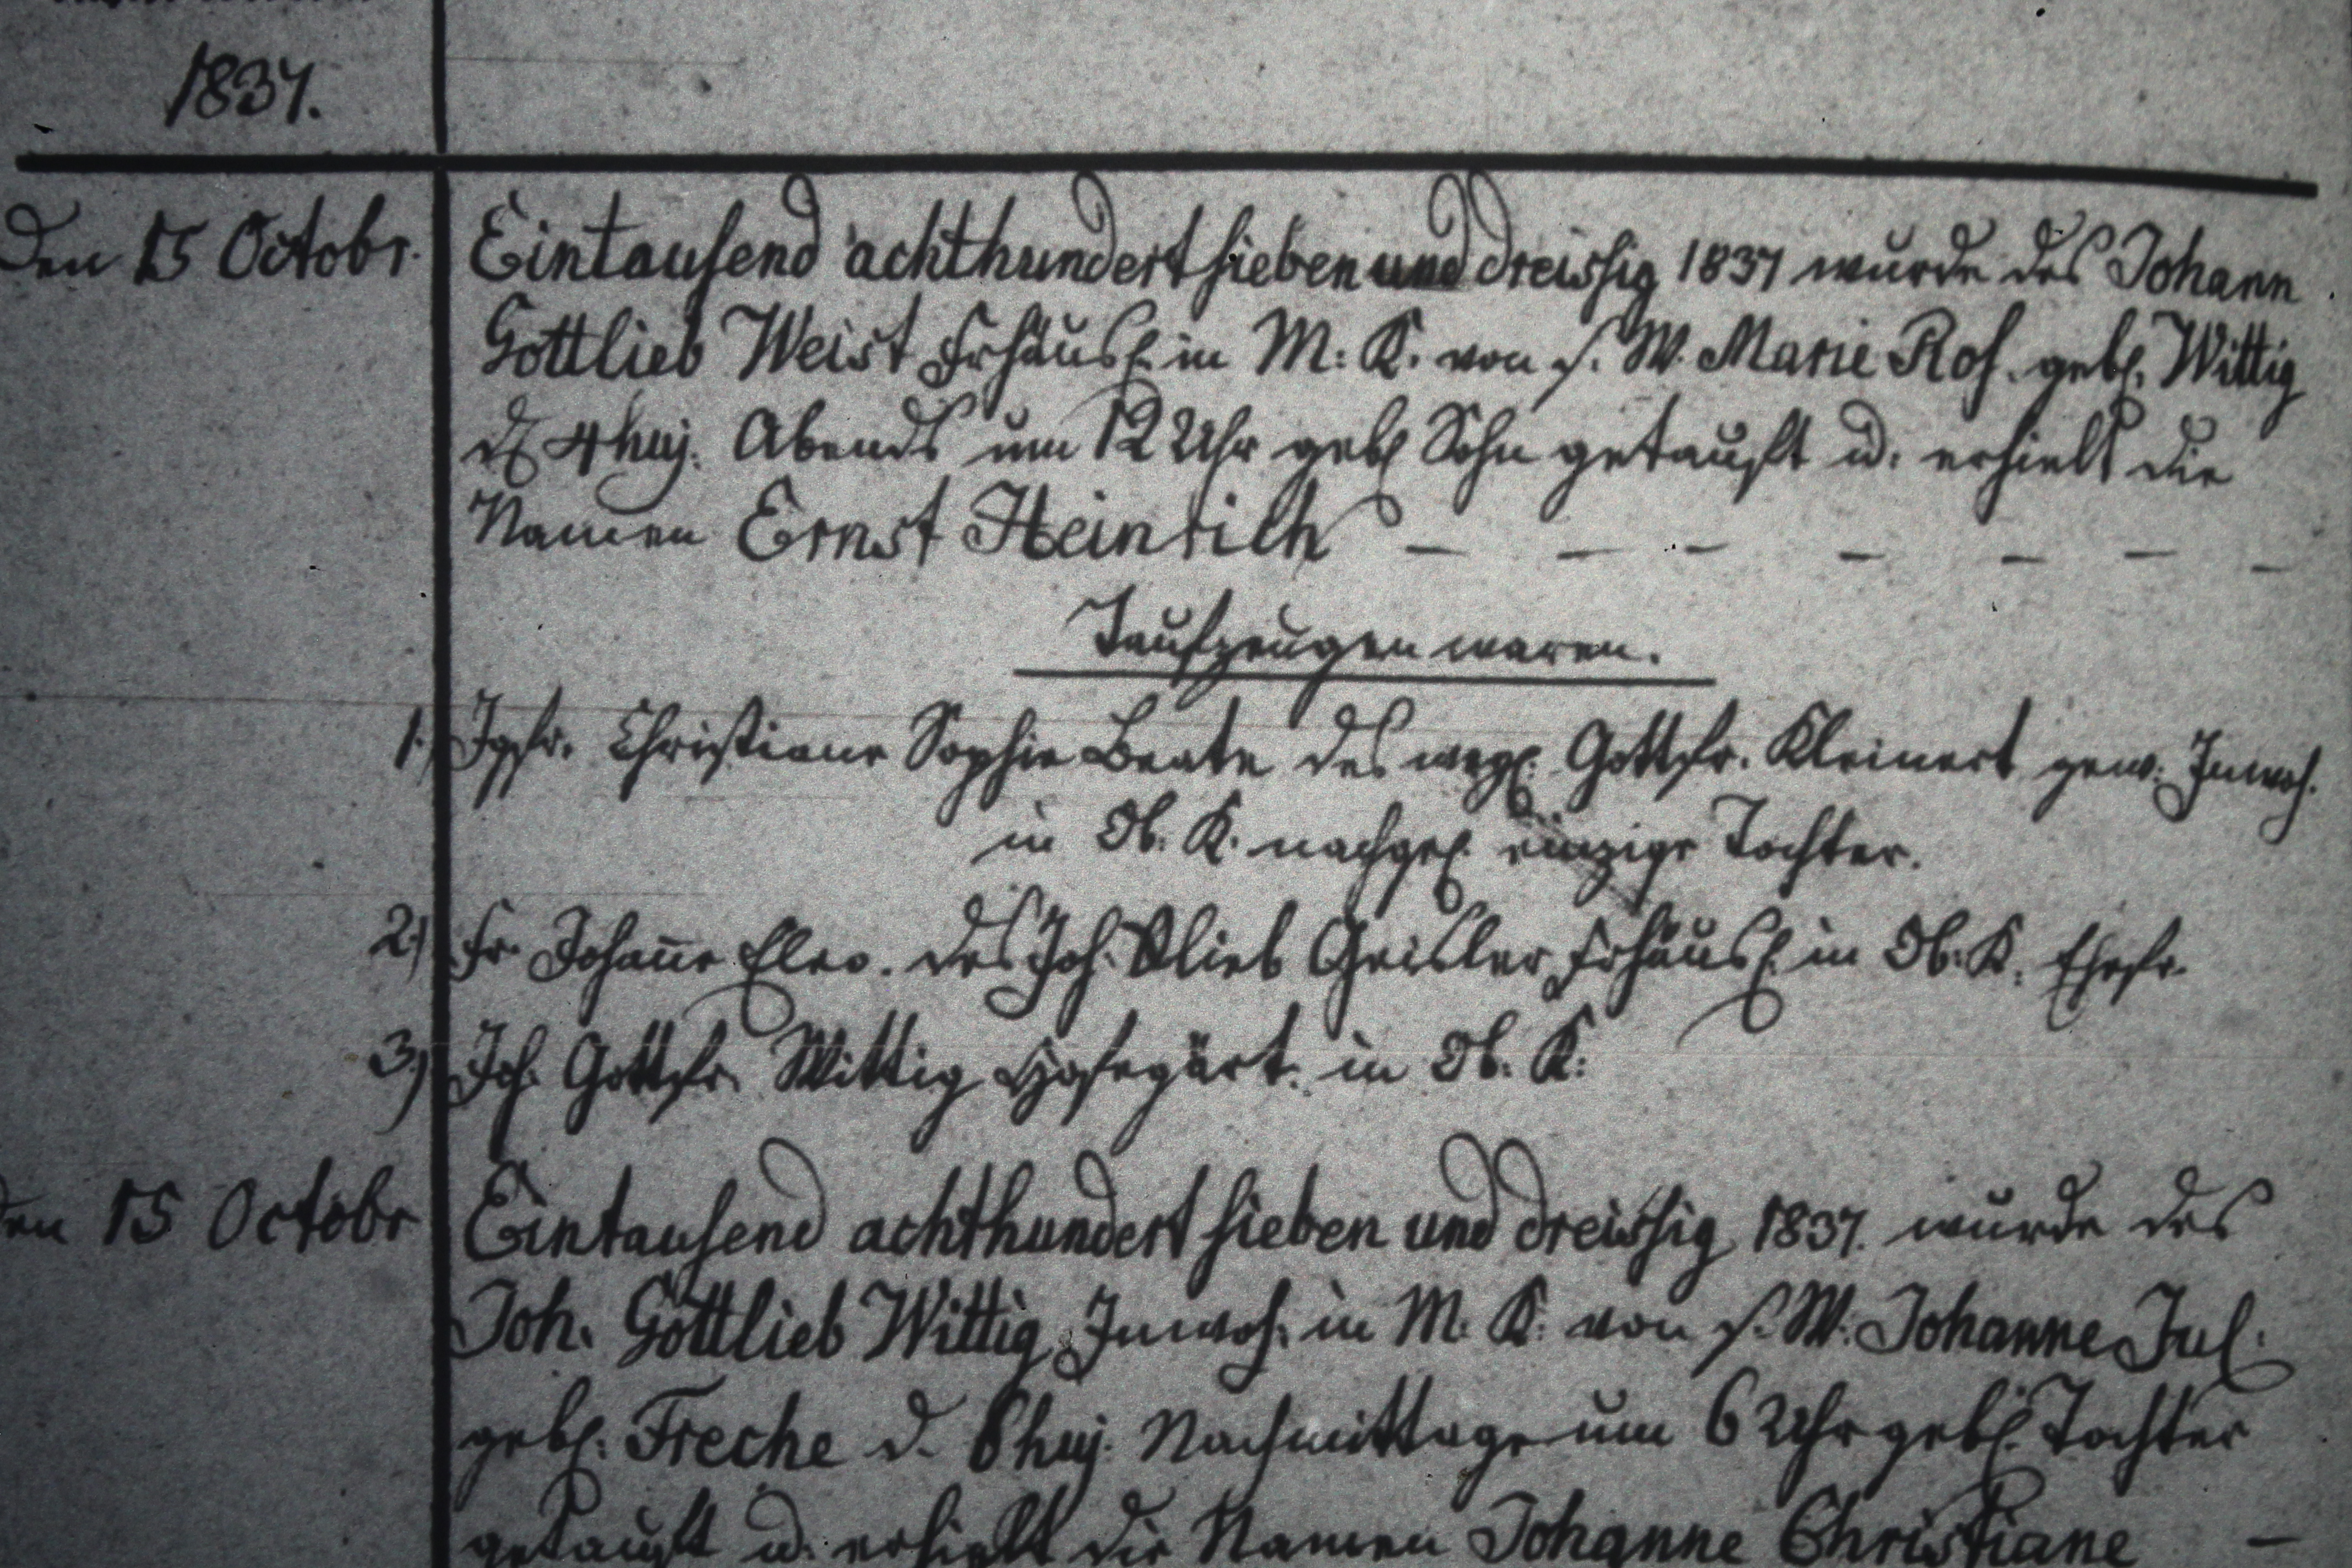 1837.
Den 15 Octobr.
Eintausend achthundert sieben und dreissig 1837 wurde des Johann
Gottlieb Weist Frhäusl. in M: K. von s. W. Marie Ros. gebl. Wittig
d 4 huj. Abends um 12 Uhr gebl Sohn getauft u. erhielt die
Namen Ernst Heinrich — — — — — — —
Taufzeugen waren.
1.) Jgfr. Christiane Sophie Beate des wegl. Gottfr. Kleinert gew: Inwoh.
in Ob. K. nachgel. einzige Tochter.
2.) Fr. Johanne Eleo. des Joh. Glieb Geisler Frhäusl. in Ob. K. Ehefr.
3.) Joh. Gottfr. Wittig Hofegärt. in Ob. K:
en 15 Octobr
Eintausend achthundert sieben und dreissig 1837. wurde des
Joh. Gottlieb Wittig Inwoh. in M. K: von s. W: Johanne Jul.
gebl: Freche d. 8 huj. Nachmittage um 6 Uhr gebl. Tochter
getauft u. erhielt die Namen Johanne Christiane —